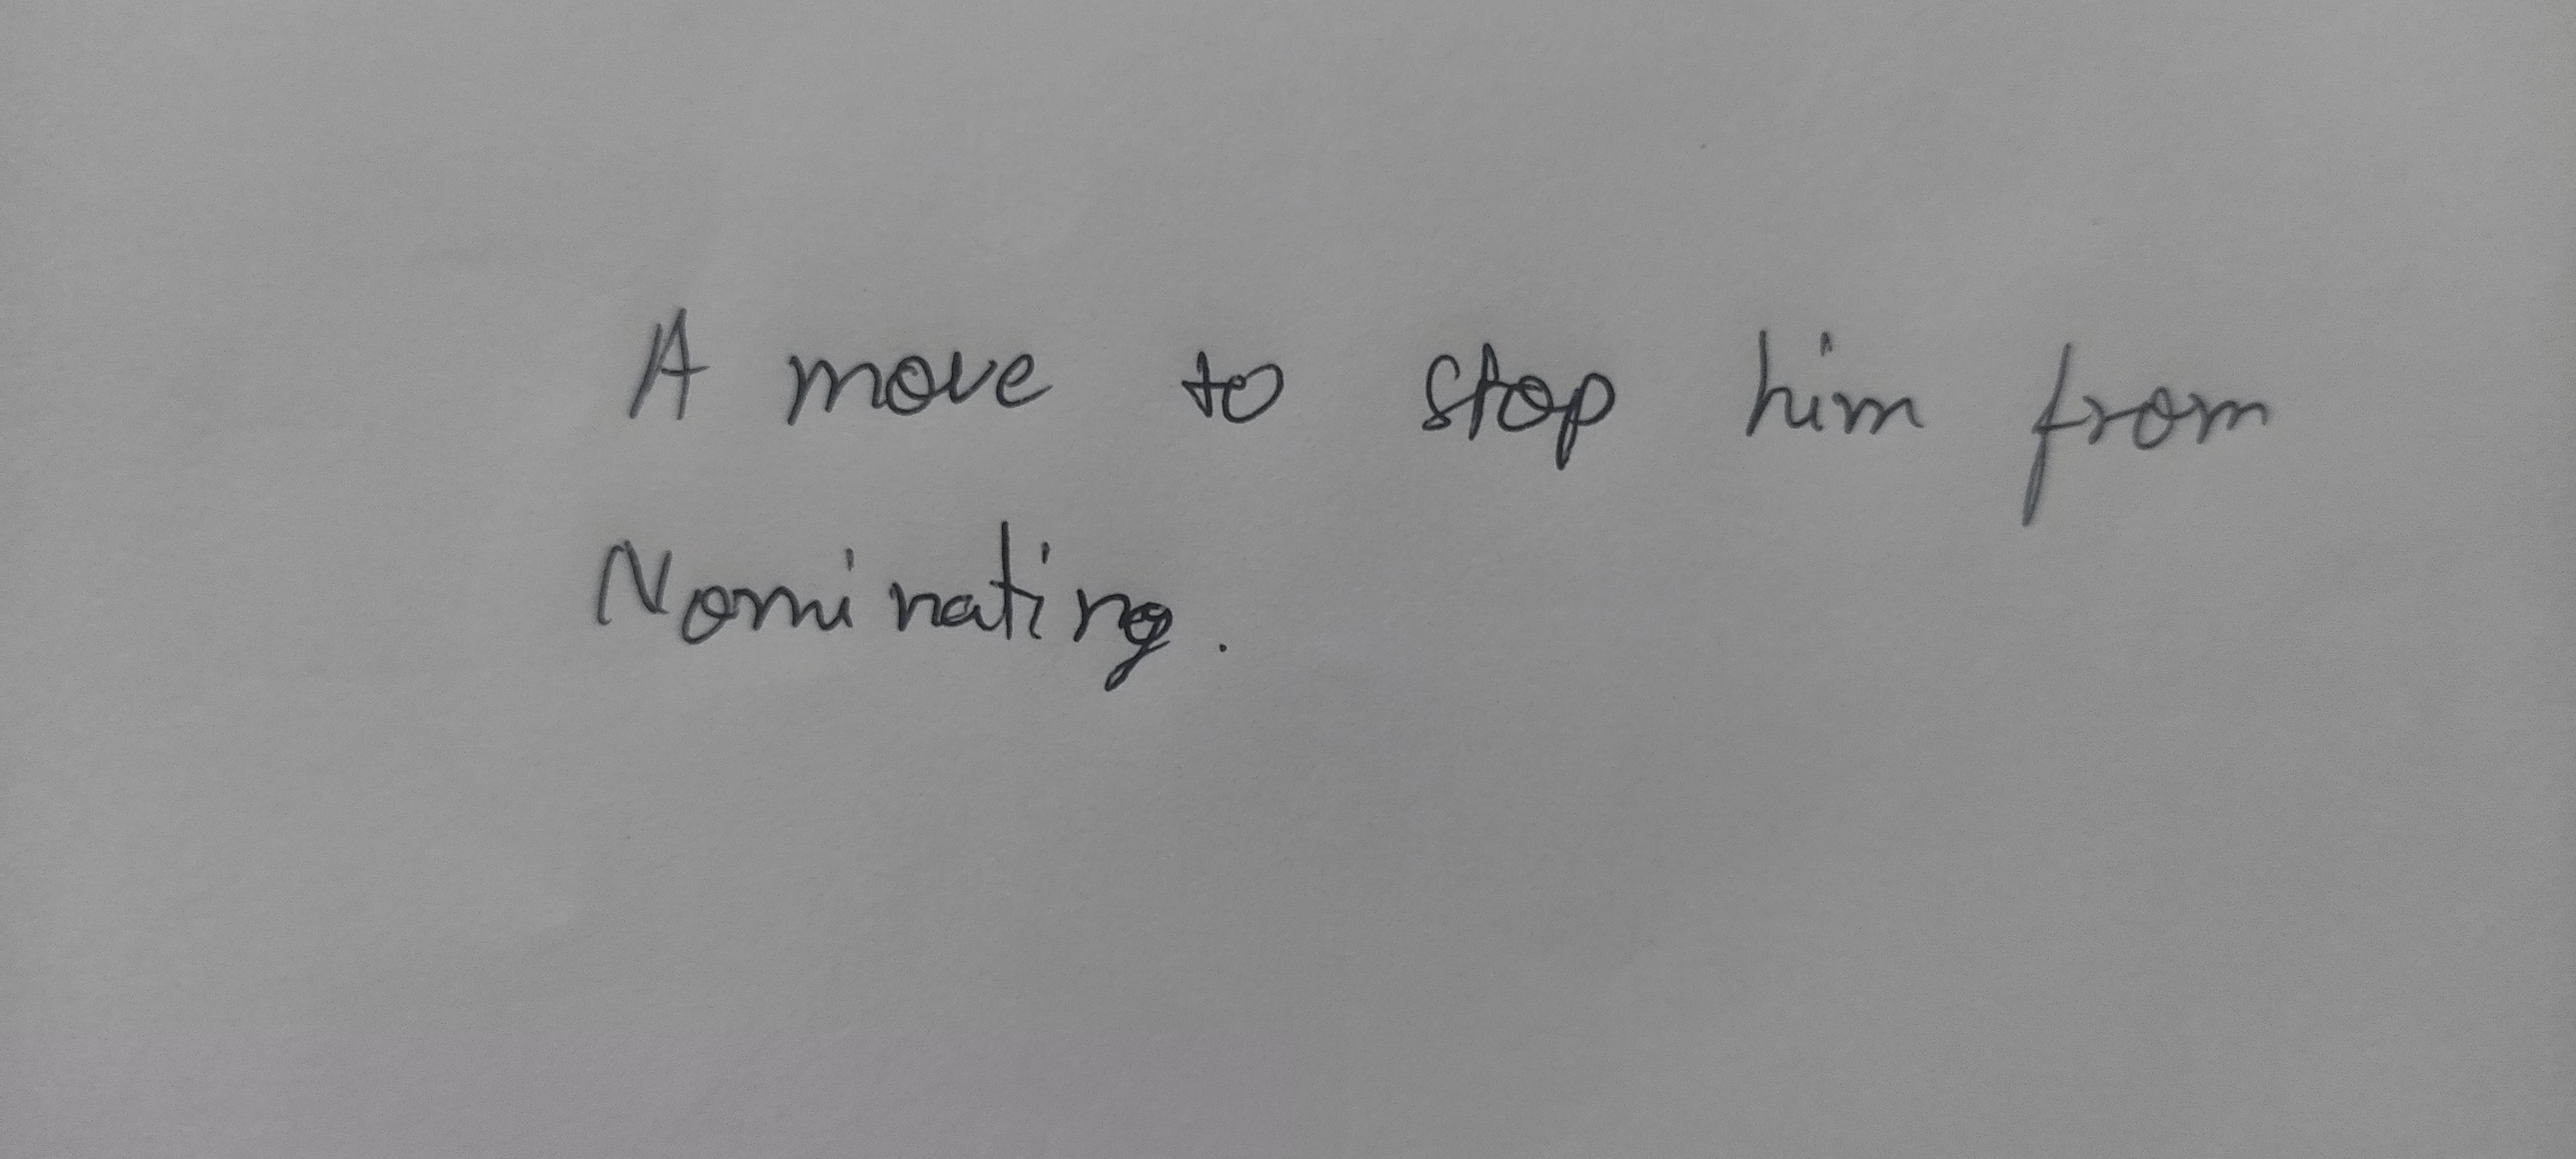 A move to stop him from
Nominating.